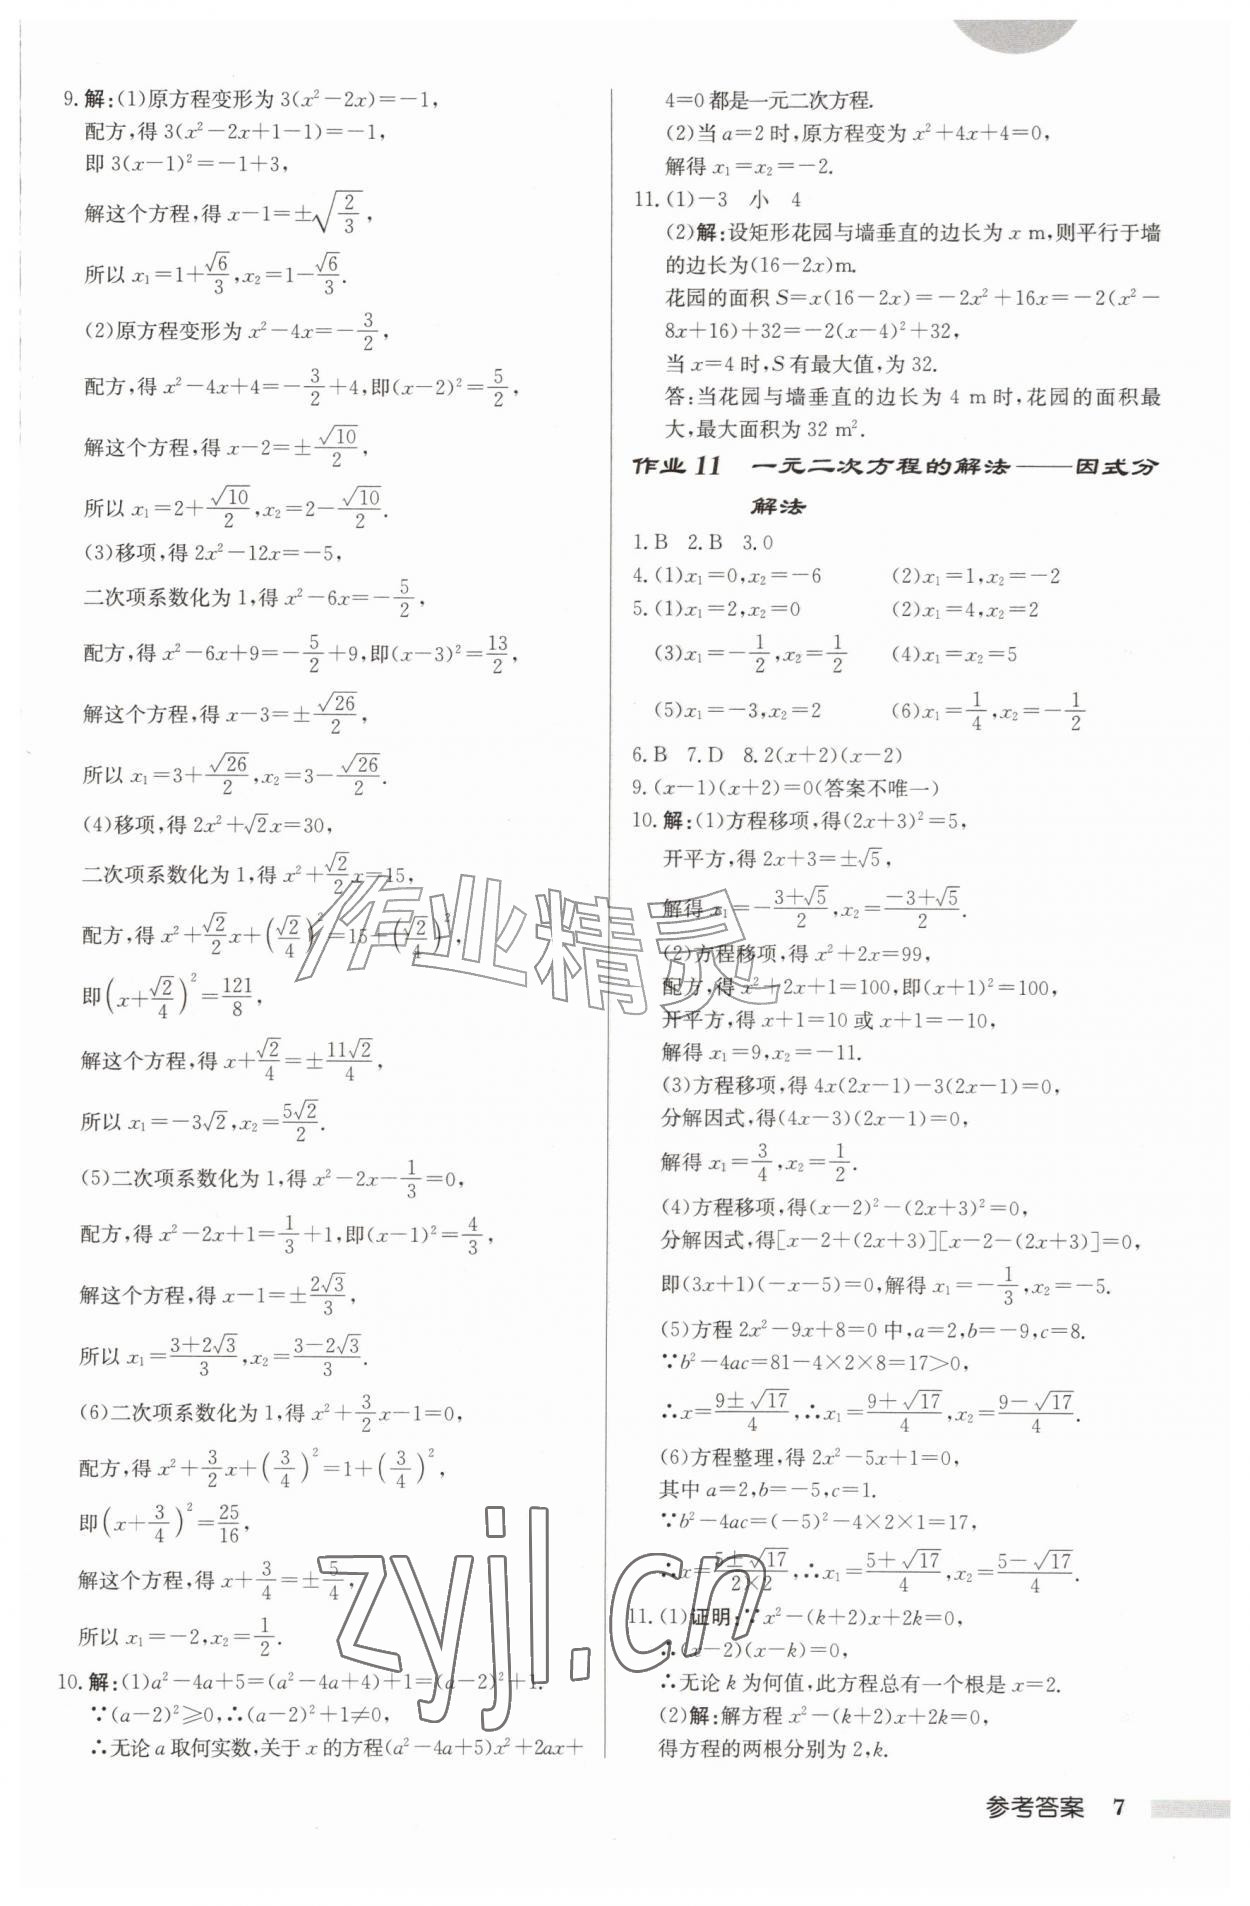 9.解:(1)原方程变形为 3(x²-2x)=-1,
配方,得 3(x²-2x+1-1)=-1,
即 3(x-1)²=-1+3,
解这个方程,得 x-1=±√(2/3),
所以 x₁=1+√6/3,x₂=1-√6/3.
(2)原方程变形为 x²-4x=-3/2,
配方,得 x²-4x+4=-3/2+4,即(x-2)²=5/2,
解这个方程,得 x-2=±√10/2,
所以 x₁=2+√10/2,x₂=2-√10/2.
(3)移项,得 2x²-12x=-5,
二次项系数化为 1,得 x²-6x=-5/2,
配方,得 x²-6x+9=-5/2+9,即(x-3)²=13/2,
解这个方程,得 x-3=±√26/2,
所以 x₁=3+√26/2,x₂=3-√26/2.
(4)移项,得 2x²+√2x=30,
二次项系数化为 1,得 x²+√2/2x=15,
配方,得 x²+√2/2x+(√2/4)²=15+(√2/4)²,
即(x+√2/4)²=121/8,
解这个方程,得 x+√2/4=±11√2/4,
所以 x₁=-3√2,x₂=5√2/2.
(5)二次项系数化为 1,得 x²-2x-1/3=0,
配方,得 x²-2x+1=1/3+1,即(x-1)²=4/3,
解这个方程,得 x-1=±2√3/3,
所以 x₁=(3+2√3)/3,x₂=(3-2√3)/3.
(6)二次项系数化为 1,得 x²+3/2x-1=0,
配方,得 x²+3/2x+(3/4)²=1+(3/4)²,
即(x+3/4)²=25/16,
解这个方程,得 x+3/4=±5/4,
所以 x₁=-2,x₂=1/2.
10.解:(1)a²-4a+5=(a²-4a+4)+1=(a-2)²+1.
∵(a-2)²≥0,∴(a-2)²+1≠0,
∴无论 a 取何实数,关于 x 的方程(a²-4a+5)x²+2ax+
4=0都是一元二次方程.
(2)当 a=2 时,原方程变为 x²+4x+4=0,
解得 x₁=x₂=-2.
11.(1)-3 小 4
(2)解:设矩形花园与墙垂直的边长为 x m,则平行于墙
的边长为(16-2x)m.
花园的面积 S=x(16-2x)=-2x²+16x=-2(x²-
8x+16)+32=-2(x-4)²+32,
当 x=4 时,S 有最大值,为 32.
答:当花园与墙垂直的边长为 4 m 时,花园的面积最
大,最大面积为 32 m².
作业11 一元二次方程的解法——因式分
解法
1.B 2.B 3.0
4.(1)x₁=0,x₂=-6 (2)x₁=1,x₂=-2
5.(1)x₁=2,x₂=0 (2)x₁=4,x₂=2
(3)x₁=-1/2,x₂=1/2 (4)x₁=x₂=5
(5)x₁=-3,x₂=2 (6)x₁=1/4,x₂=-1/2
6.B 7.D 8.2(x+2)(x-2)
9.(x-1)(x+2)=0(答案不唯一)
10.解:(1)方程移项,得(2x+3)²=5,
开平方,得 2x+3=±√5,
解得 x₁=-(3+√5)/2,x₂=(-3+√5)/2.
(2)方程移项,得 x²+2x=99,
配方,得 x²+2x+1=100,即(x+1)²=100,
开平方,得 x+1=10 或 x+1=-10,
解得 x₁=9,x₂=-11.
(3)方程移项,得 4x(2x-1)-3(2x-1)=0,
分解因式,得(4x-3)(2x-1)=0,
解得 x₁=3/4,x₂=1/2.
(4)方程移项,得(x-2)²-(2x+3)²=0,
分解因式,得[x-2+(2x+3)][x-2-(2x+3)]=0,
即(3x+1)(-x-5)=0,解得 x₁=-1/3,x₂=-5.
(5)方程 2x²-9x+8=0 中,a=2,b=-9,c=8.
∵b²-4ac=81-4×2×8=17>0,
∴x=(9±√17)/4,∴x₁=(9+√17)/4,x₂=(9-√17)/4.
(6)方程整理,得 2x²-5x+1=0,
其中 a=2,b=-5,c=1.
∵b²-4ac=(-5)²-4×2×1=17,
∴x=(5±√17)/(2×2),∴x₁=(5+√17)/4,x₂=(5-√17)/4.
11.(1)证明:∵x²-(k+2)x+2k=0,
∴(x-2)(x-k)=0,
∴无论 k 为何值,此方程总有一个根是 x=2.
(2)解:解方程 x²-(k+2)x+2k=0,
得方程的两根分别为 2,k.
参考答案 7
作业精灵
zyjl.cn